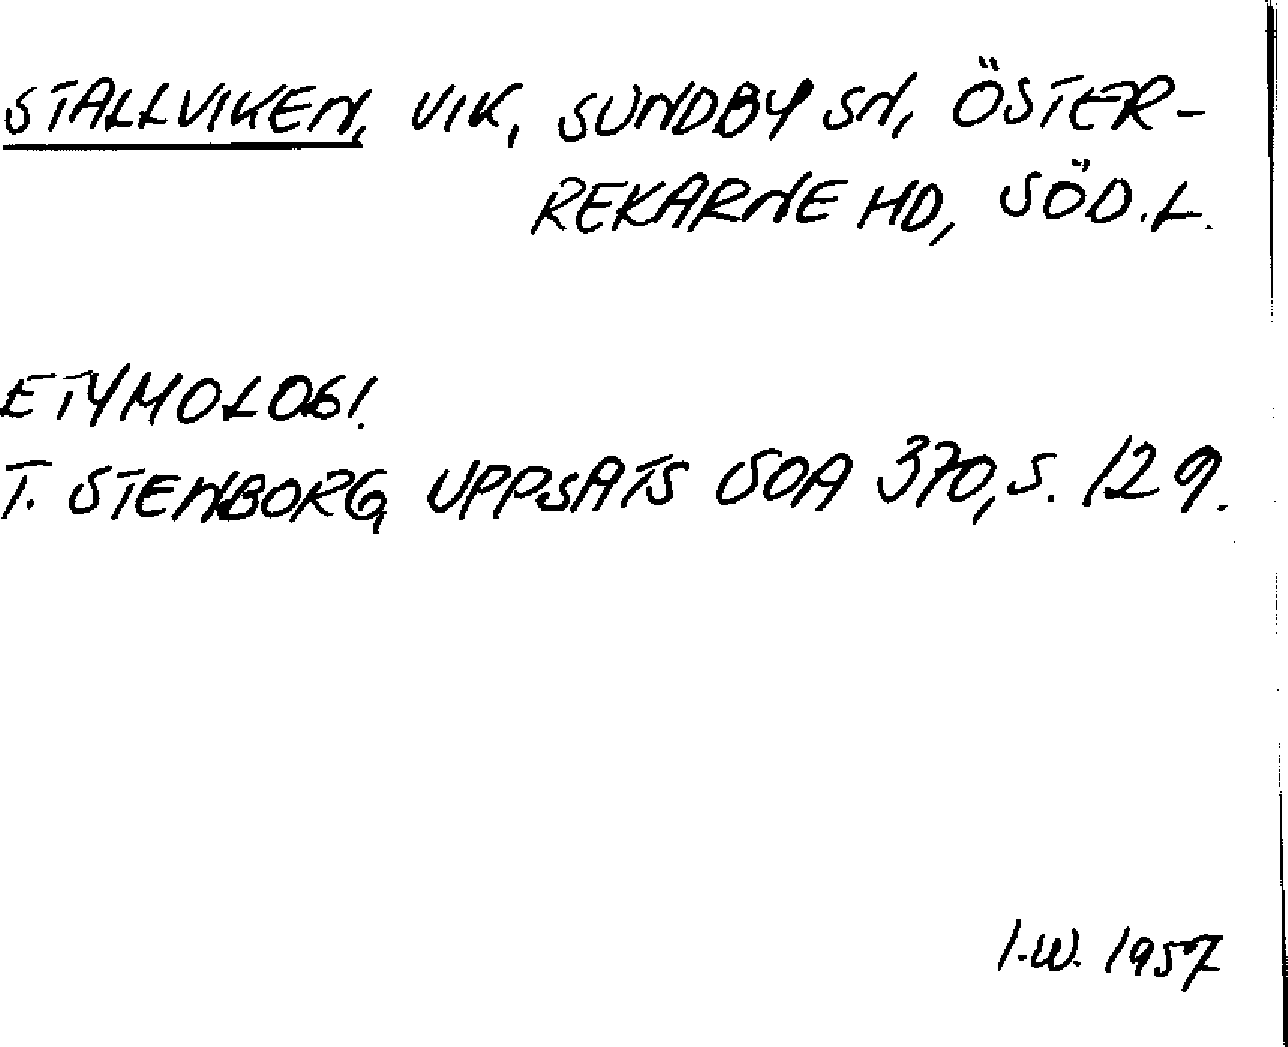 STALLVIKEN, VIK, SUNDBY SN, ÖSTER-
REKARNE HD, SÖD.L.
ETYMOLOGI.
T. STENBORG, UPPSATS SOA 370, S. 129.
I.W. 1957